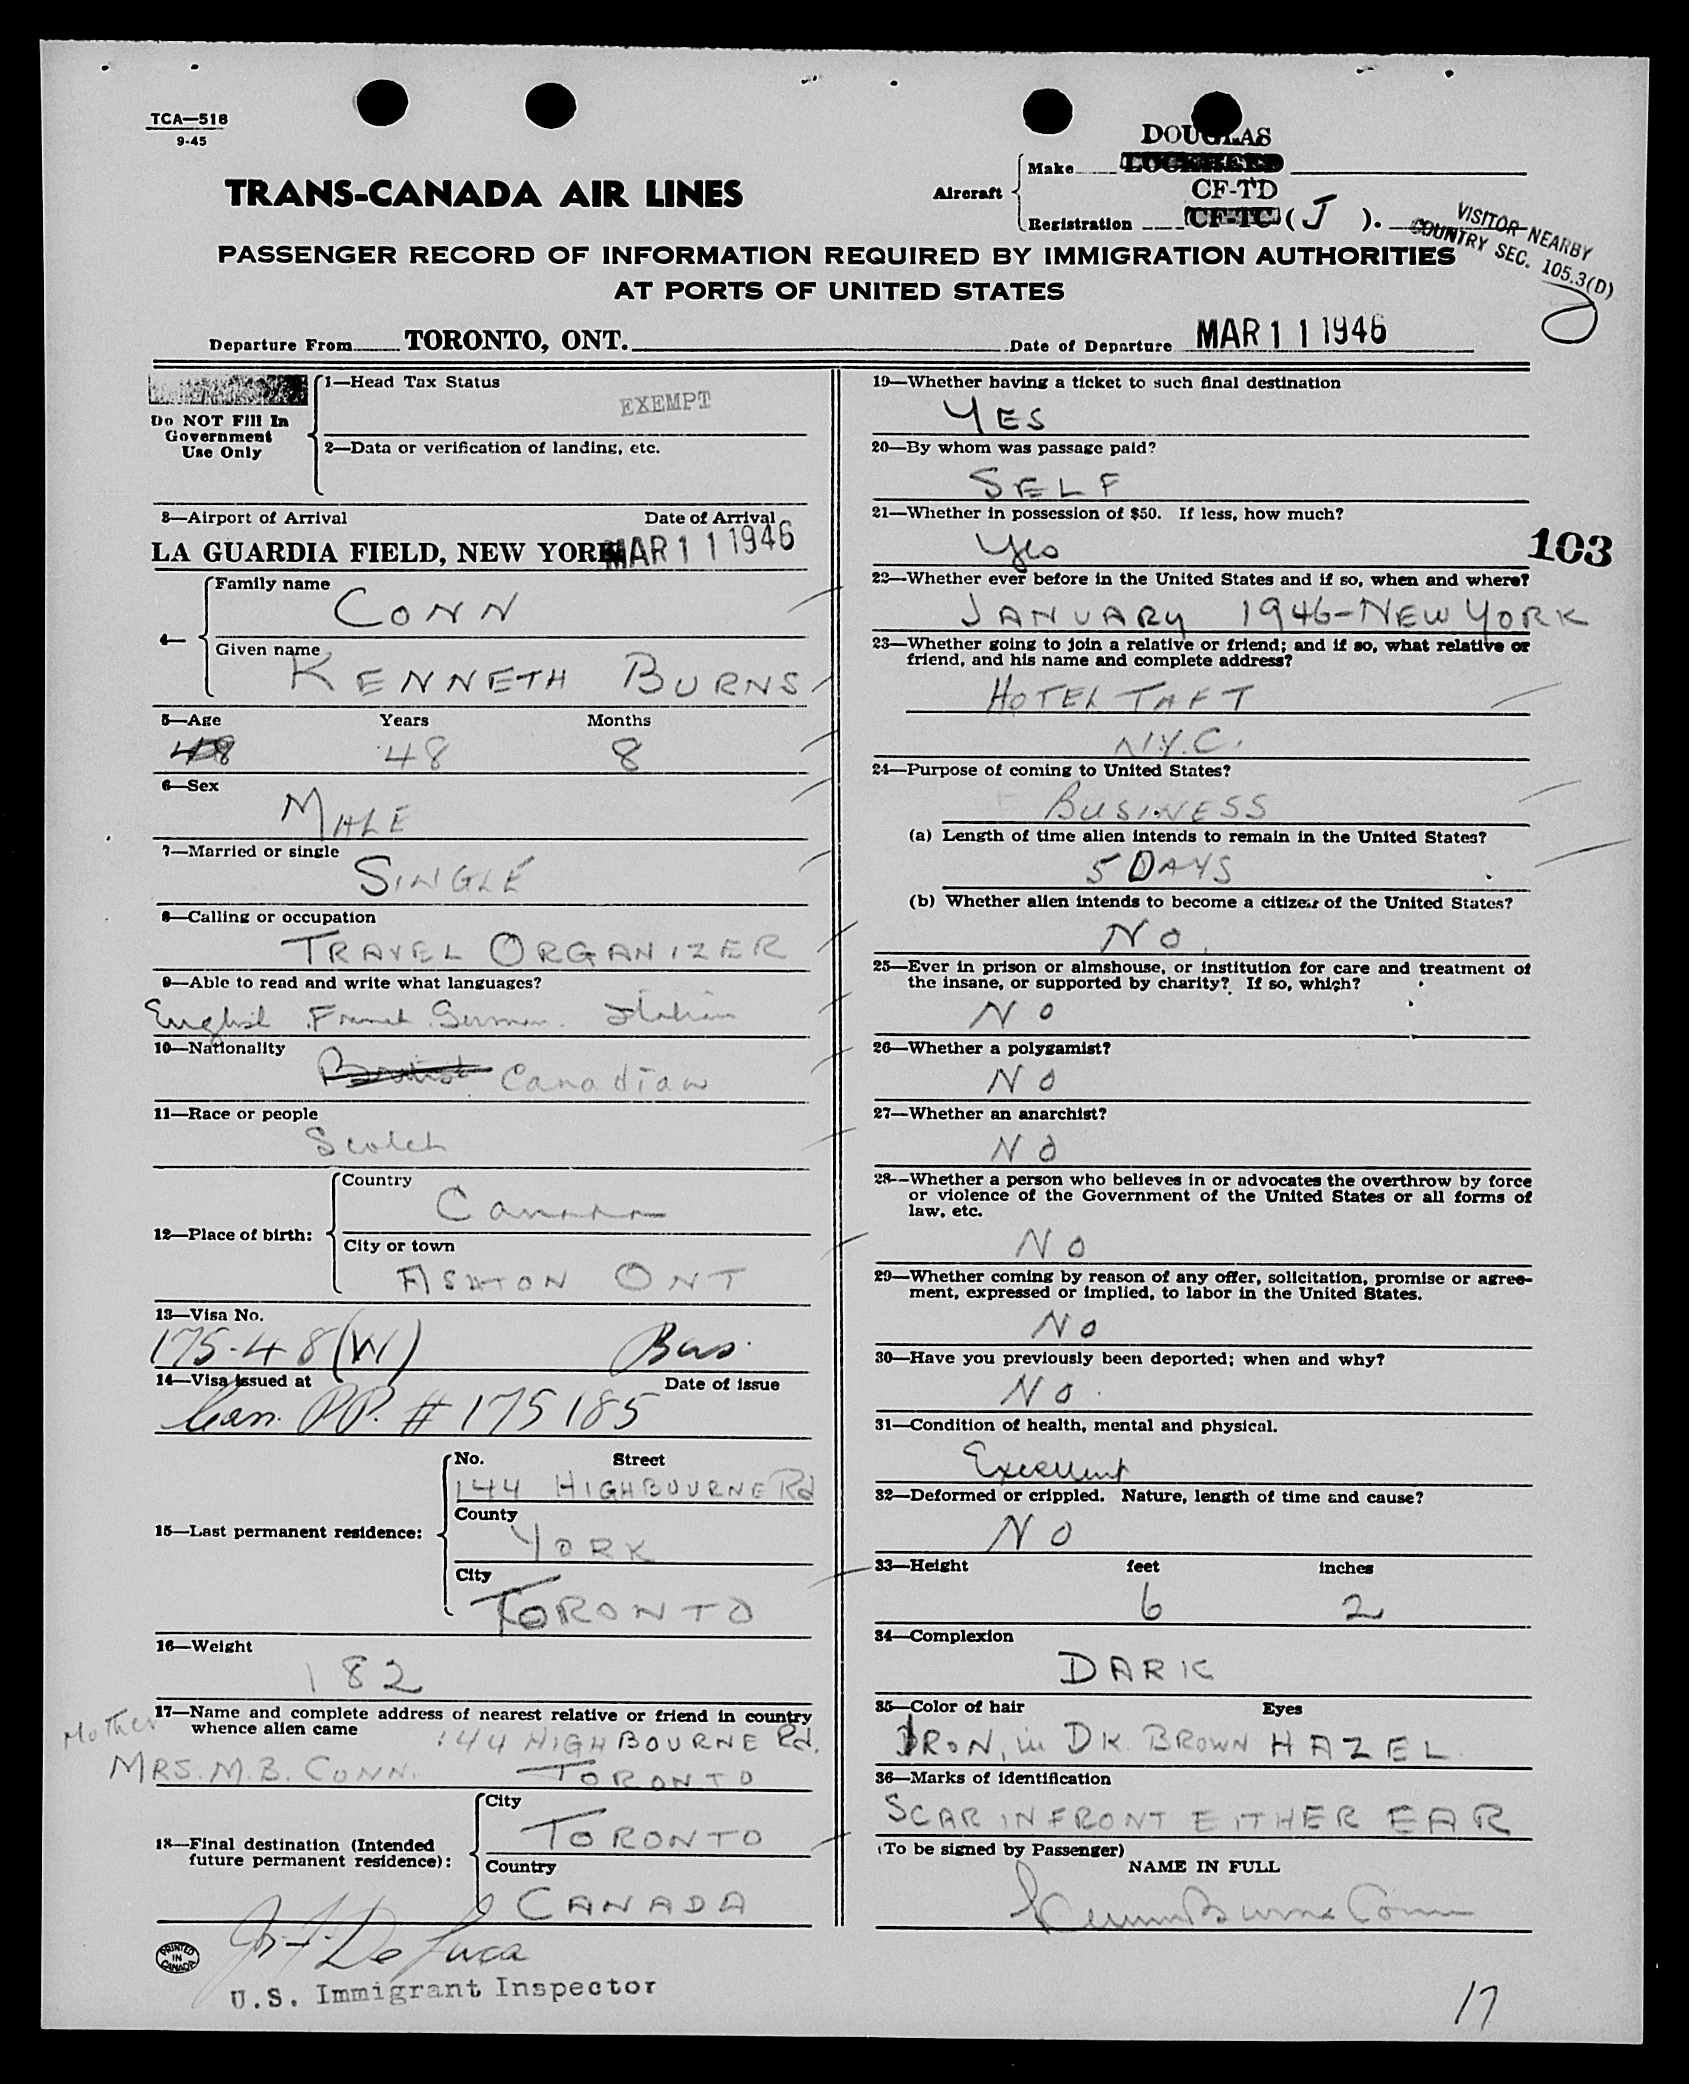 TCA—518
9-45
DOUGLAS
TRANS-CANADA AIR LINES
Aircraft
Make
CF-TD
Registration CF-TC ( J ).
VISITOR NEARBY
COUNTRY SEC. 105.3(D)
PASSENGER RECORD OF INFORMATION REQUIRED BY IMMIGRATION AUTHORITIES
AT PORTS OF UNITED STATES
Departure From TORONTO, ONT. Date of Departure MAR 11 1946
Do NOT Fill In
Government
Use Only
1—Head Tax Status
EXEMPT
2—Data or verification of landing, etc.
3—Airport of Arrival Date of Arrival
LA GUARDIA FIELD, NEW YORK MAR 11 1946
4—
Family name
CONN
Given name
KENNETH BURNS
5—Age Years Months
48 48 8
6—Sex
MALE
7—Married or single
SINGLE
8—Calling or occupation
TRAVEL ORGANIZER
9—Able to read and write what languages?
English French German Italian
10—Nationality
British Canadian
11—Race or people
Scotch
12—Place of birth:
Country
Canada
City or town
ASHTON ONT
13—Visa No.
175-48(W) Bus.
14—Visa issued at Date of issue
Can. P.P. # 175185
15—Last permanent residence:
No. Street
144 HIGHBOURNE Rd
County
YORK
City
TORONTO
16—Weight
182
17—Name and complete address of nearest relative or friend in country
whence alien came
Mother
144 HIGHBOURNE Rd.
MRS. M. B. CONN. TORONTO
18—Final destination (Intended
future permanent residence):
City
TORONTO
Country
CANADA
De Luca
U.S. Immigrant Inspector
PRINTED
IN
CANADA
19—Whether having a ticket to such final destination
YES
20—By whom was passage paid?
SELF
21—Whether in possession of $50. If less, how much?
Yes
103
22—Whether ever before in the United States and if so, when and where?
JANUARY 1946-NEW YORK
23—Whether going to join a relative or friend; and if so, what relative or
friend, and his name and complete address?
HOTEL TAFT
N.Y.C.
24—Purpose of coming to United States?
BUSINESS
(a) Length of time alien intends to remain in the United States?
5 DAYS
(b) Whether alien intends to become a citizen of the United States?
NO.
25—Ever in prison or almshouse, or institution for care and treatment of
the insane, or supported by charity? If so, which?
NO
26—Whether a polygamist?
NO
27—Whether an anarchist?
NO
28—Whether a person who believes in or advocates the overthrow by force
or violence of the Government of the United States or all forms of
law, etc.
NO
29—Whether coming by reason of any offer, solicitation, promise or agree-
ment, expressed or implied, to labor in the United States.
NO
30—Have you previously been deported; when and why?
NO.
31—Condition of health, mental and physical.
Excellent
32—Deformed or crippled. Nature, length of time and cause?
NO
33—Height feet inches
6 2
34—Complexion
DARK
35—Color of hair Eyes
IRON, in DK. BROWN HAZEL.
36—Marks of identification
SCAR IN FRONT EITHER EAR
(To be signed by Passenger)
NAME IN FULL
Kenneth Burns Conn
17